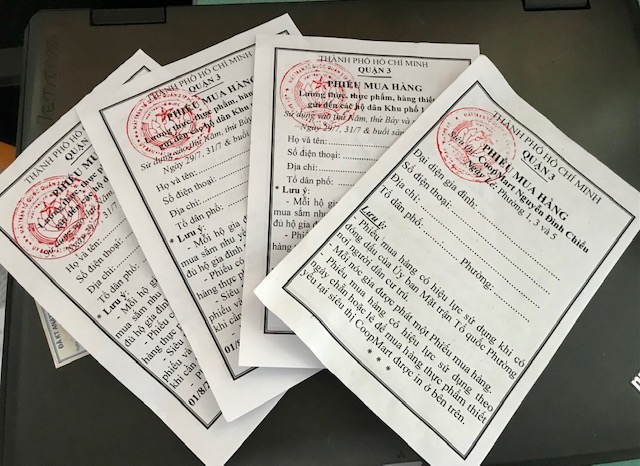 THÀNH PHỐ
QUẬN 3
PHIẾU MUA
Họ và tên:
Số điện thoại:
Địa chỉ:
Tổ dân phố:
* Lưu ý:
- Mỗi hộ
mua sắm nhu
đủ hộ gia đình
- Phiếu
hàng thực
- Siêu
phiếu và
khi cần
THÀNH PHỐ HỒ
QUẬN 3
PHIẾU MUA HÀNG
Lương thực, thực phẩm,
gửi đến các hộ dân Khu
Sử dụng vào thứ Năm, thứ Bảy
Ngày 29/7, 31/7 & buổi
Họ và tên:
Số điện thoại:
Địa chỉ:
Tổ dân phố:
* Lưu ý:
- Mỗi hộ gia
mua sắm nhu y
đủ hộ gia đình
- Phiếu có
hàng thực ph
- Siêu
phiếu và
khi cần
01/8/
THÀNH PHỐ HỒ CHÍ MINH
QUẬN 3
PHIẾU MUA HÀNG
Lương thực, thực phẩm, hàng thiết
gửi đến các hộ dân Khu phố 1
Sử dụng vào thứ Năm, thứ Bảy và
Ngày 29/7, 31/7 & buổi sáng
Họ và tên:
Số điện thoại:
Địa chỉ:
Tổ dân phố:
* Lưu ý:
- Mỗi hộ
mua sắm nhu
đủ hộ gia đình
- Phiếu
01/8/2
THÀNH PHỐ HỒ CHÍ MINH
QUẬN 3
PHIẾU MUA HÀNG
Siêu thị CoopMart Nguyễn Đình Chiểu
Ngày Lẻ: Phường 1, 3 và 5
Đại diện gia đình:
Số điện thoại:
Địa chỉ:
Tổ dân phố: Phường:
Lưu ý:
- Phiếu mua hàng có hiệu lực sử dụng khi có
đóng dấu của Ủy ban Mặt trận Tổ quốc Phường
nơi người dân cư trú.
- Mỗi nóc gia được phát một Phiếu mua hàng.
- Phiếu mua hàng có hiệu lực sử dụng theo
ngày chẵn hoặc lẻ để mua hàng thực phẩm thiết
yếu tại siêu thị CoopMart được in ở bên trên.
* * *